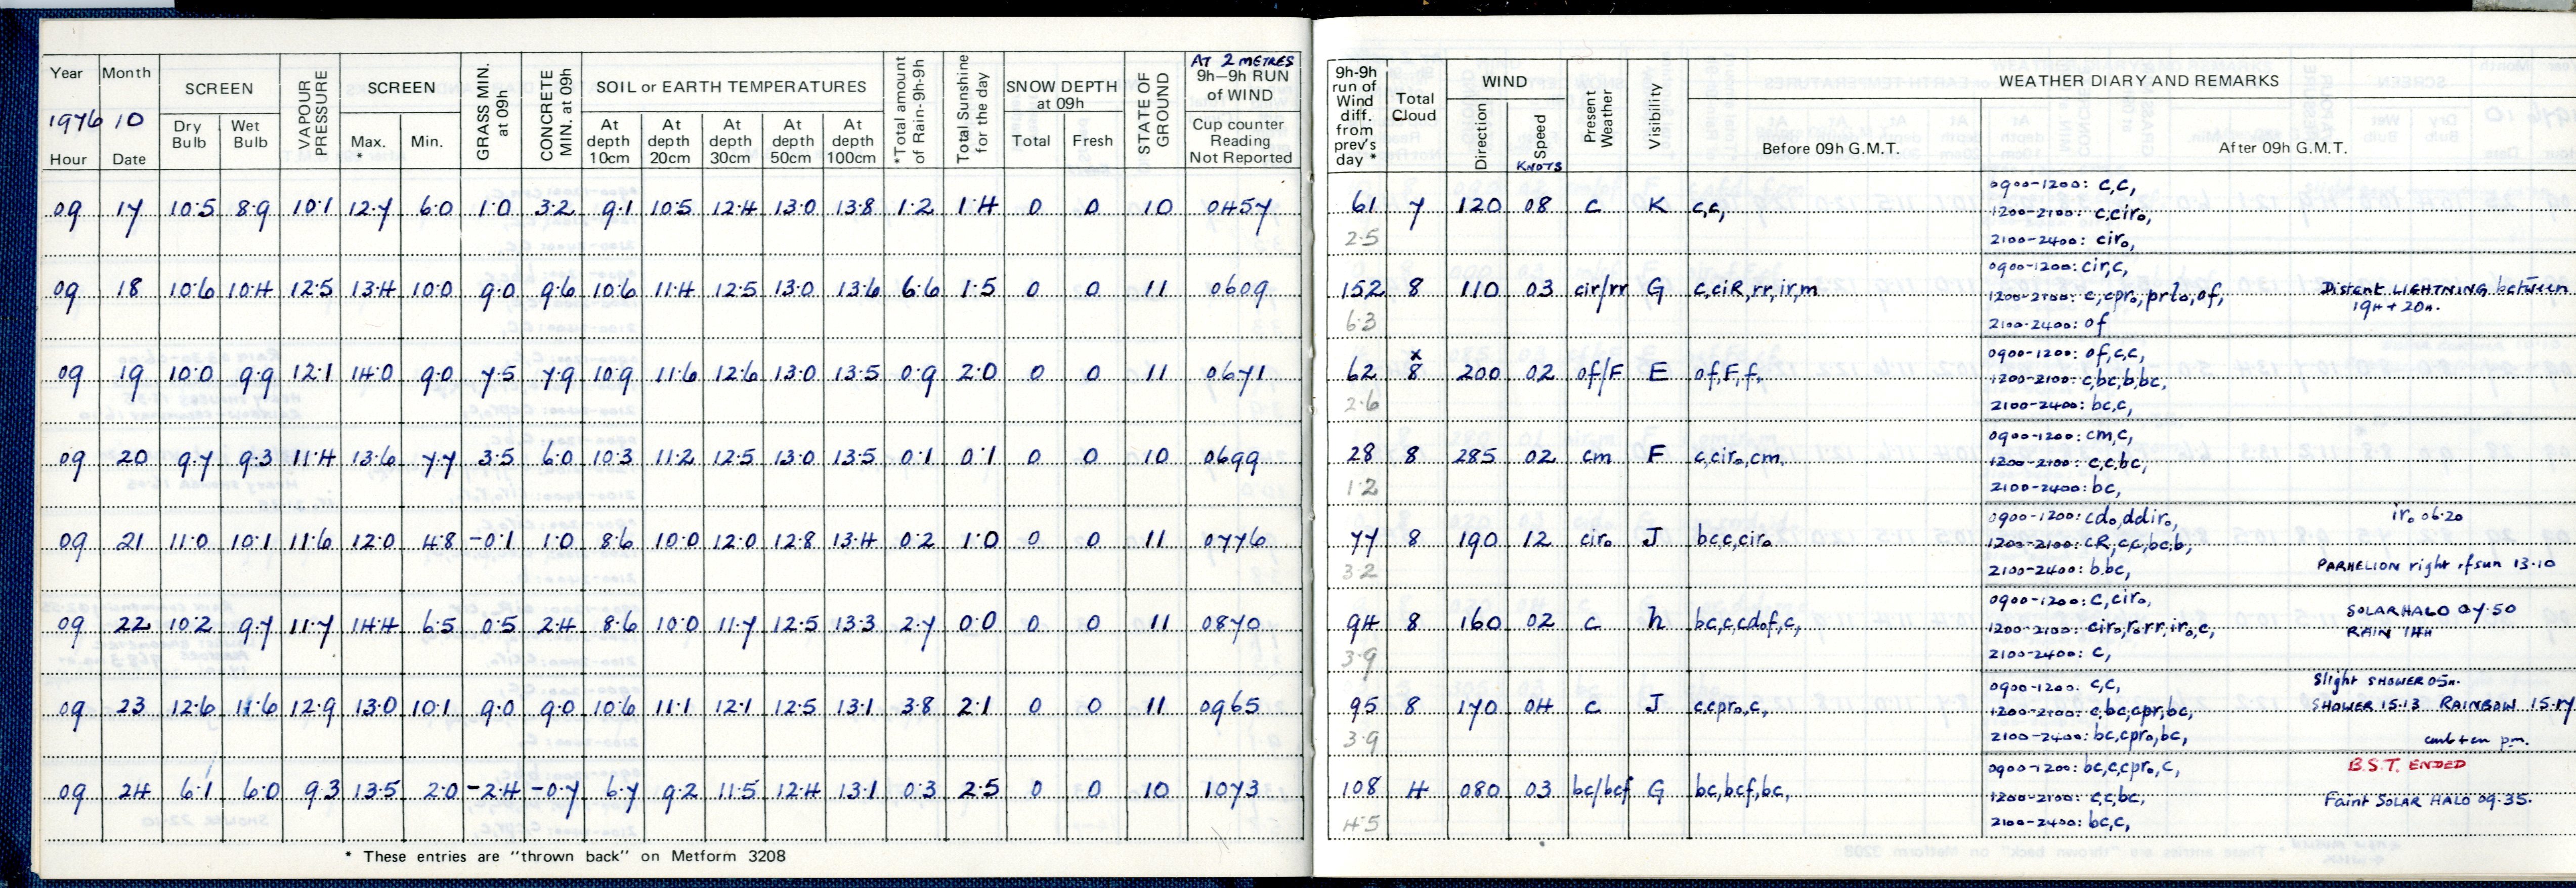 Year Month SCREEN VAPOUR PRESSURE SCREEN GRASS MIN. at 09h CONCRETE MIN. at 09h SOIL or EARTH TEMPERATURES *Total amount of Rain 9h-9h Total Sunshine for the day SNOW DEPTH at 09h STATE OF GROUND AT 2 METRES 9h–9h RUN of WIND
1976 10 Dry Bulb Wet Bulb Max. * Min. At depth 10cm At depth 20cm At depth 30cm At depth 50cm At depth 100cm Total Fresh Cup counter Reading Not Reported
Hour Date
09 17 10.5 8.9 10.1 12.7 6.0 1.0 3.2 9.1 10.5 12.4 13.0 13.8 1.2 1.4 0 0 10 0457
09 18 10.6 10.4 12.5 13.4 10.0 9.0 9.6 10.6 11.4 12.5 13.0 13.6 6.6 1.5 0 0 11 0609
09 19 10.0 9.9 12.1 14.0 9.0 7.5 7.9 10.9 11.6 12.6 13.0 13.5 0.9 2.0 0 0 11 0671
09 20 9.7 9.3 11.4 13.6 7.7 3.5 6.0 10.3 11.2 12.5 13.0 13.5 0.1 0.1 0 0 10 0699
09 21 11.0 10.1 11.6 12.0 4.8 -0.1 1.0 8.6 10.0 12.0 12.8 13.4 0.2 1.0 0 0 11 0776
09 22 10.2 9.7 11.7 14.4 6.5 0.5 2.4 8.6 10.0 11.7 12.5 13.3 2.7 0.0 0 0 11 0870
09 23 12.6 11.6 12.9 13.0 10.1 9.0 9.0 10.6 11.1 12.1 12.5 13.1 3.8 2.1 0 0 11 0965
09 24 6.1 6.0 9.3 13.5 2.0 -2.4 -0.7 6.7 9.2 11.5 12.4 13.1 0.3 2.5 0 0 10 1073
* These entries are "thrown back" on Metform 3208
9h-9h run of Wind diff. from prev's day * Total Cloud WIND Present Weather Visibility WEATHER DIARY AND REMARKS
Direction Speed KNOTS Before 09h G.M.T. After 09h G.M.T.
0900-1200: c,c,
61 7 120 08 c K c,c, 1200-2100: c,ciro,
2.5 2100-2400: ciro,
0900-1200: cir,c,
152 8 110 03 cir/rr G c,ciR,rr,ir,m 1200-2100: c,cpro,prlo,of, Distant LIGHTNING between
19h + 20h.
6.3 2100-2400: of
x 0900-1200: of,c,c,
62 8 200 02 of/F E of,F,f, 1200-2100: c,bc,b,bc,
2.6 2100-2400: bc,c,
0900-1200: cm,c,
28 8 285 02 cm F c,ciro,cm, 1200-2100: c,c,bc,
1.2 2100-2400: bc,
0900-1200: cdo,ddiro, iro 06.20
77 8 190 12 ciro J bc,c,ciro 1200-2100: cR,cc,bc,b,
3.2 2100-2400: b,bc, PARHELION right of sun 13.10
0900-1200: c,ciro, SOLAR HALO 07.50
94 8 160 02 c h bc,c,cdof,c, 1200-2100: ciro,ro,rr,iro,c, RAIN 14h
3.9 2100-2400: c,
Slight SHOWER 05h.
0900-1200: c,c,
95 8 170 04 c J c,cpro,c, 1200-2100: c,bc,cpr,bc, SHOWER 15.13 RAINBOW 15.17
3.9 2100-2400: bc,cpro,bc, cumb + cu p.m.
0900-1200: bc,c,cpro,c, B.S.T. ENDED
108 4 080 03 bc/bcf G bc,bcf,bc, 1200-2100: c,c,bc, Faint SOLAR HALO 09.35.
4.5 2100-2400: bc,c,